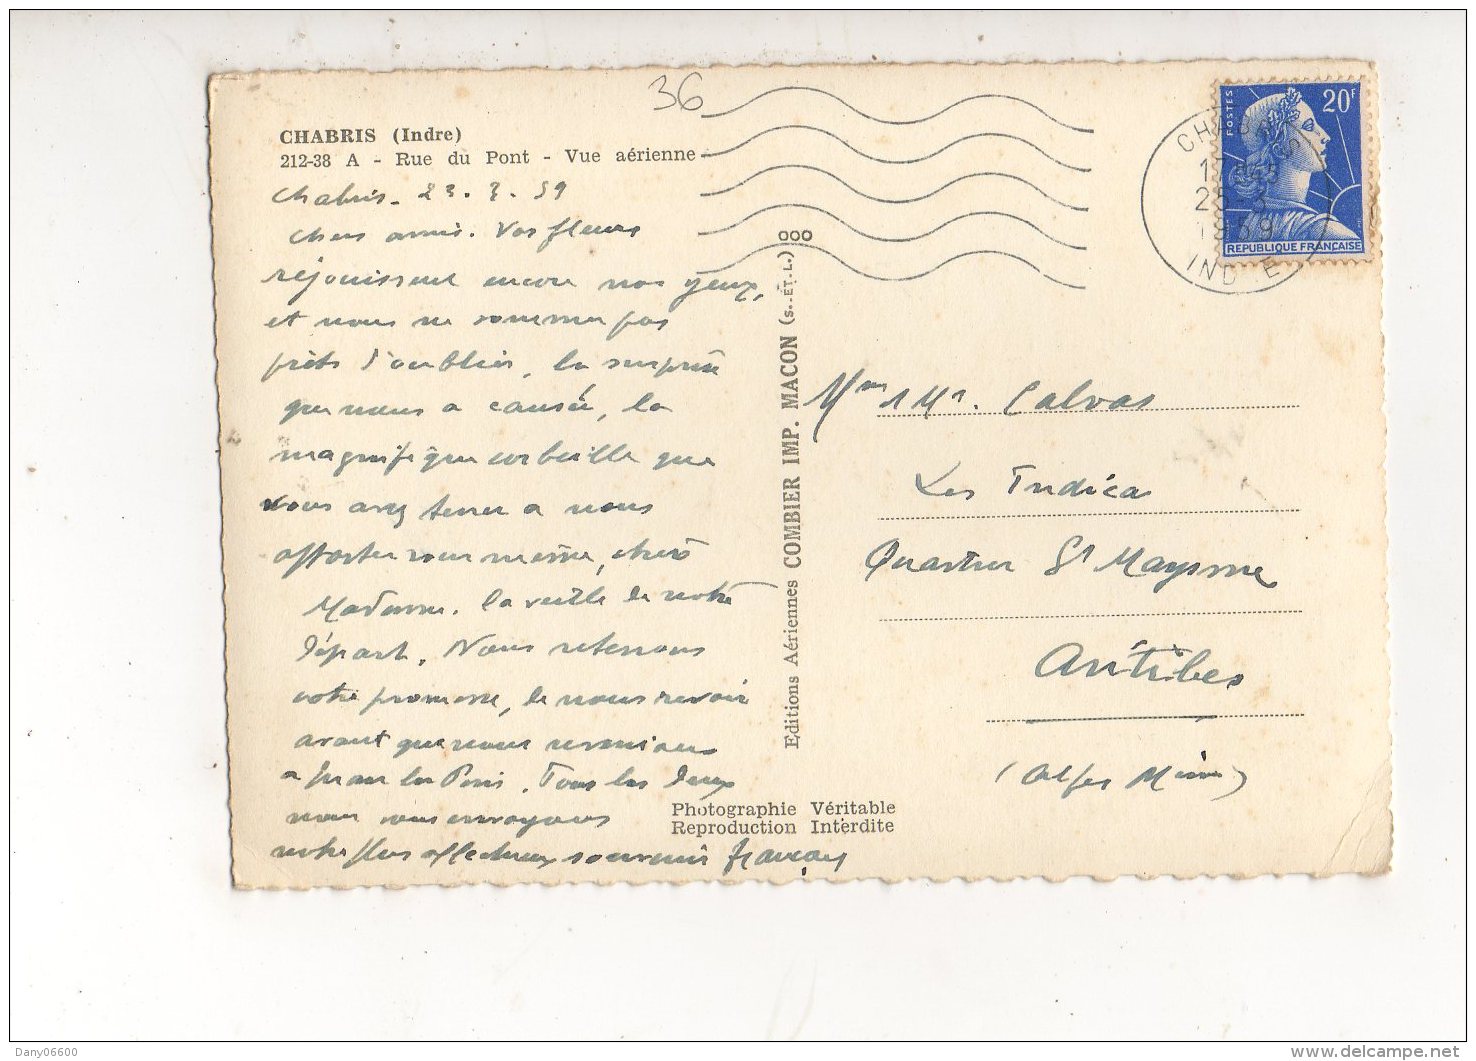 36
CHABRIS (Indre)
212-38 A - Rue du Pont - Vue aérienne
Chabris. 23. 3. 59
Chers amis. Vos fleurs
réjouissent encore nos yeux,
et nous ne sommes pas
prêts d'oublier, la surprise
que nous a causée, la
magnifique corbeille que
vous avez tenu a nous
apporter vous même, chère
Madame. la veille de notre
départ. Nous retenons
votre promesse, de nous revoir
avant que nous revenions
a Juan les Pins. Tous les deux
nous vous envoyons
notre plus affectueux souvenir
Editions Aériennes COMBIER IMP. MACON (S.-ET-L.)
Photographie Véritable
Reproduction Interdite
POSTES
20F
REPUBLIQUE FRANÇAISE
CHABRIS
17H45
1959
INDRE
Calvas
Les Indica
Quartier St Maymme
Antibes
(Alpes Mmes)
Dany06600
delcampe.net